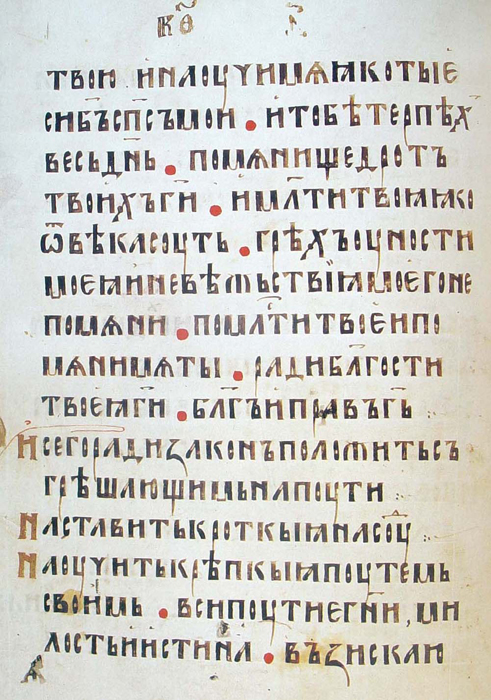 к҃ѳ
твою и наоучи мѧ ꙗко ты ѥ
си б҃ъ сп҃съ мои • и тобѣ терпѣх
весь дн҃ь • помѧни щедротъ
твоихъ г҃и • и мл҃ти твоꙗ ꙗко
ѿ вѣка соуть • грѣхъ оуности
моеꙗ и невѣтьствиꙗ моего не
помѧни • по мл҃ти твоеи по
мѧни мѧ ты • ради бл҃гости
твоеꙗ г҃и • бл҃гъ и правъ г҃ь :
И сего ради законъ положить съ
грѣшающимь на поути
Наставить кроткыꙗ на соуд :
Наоучить крѣпкыꙗ поутемь
своимь • вси поутиѥ г҃ни, ми
лость и истина • възискаю